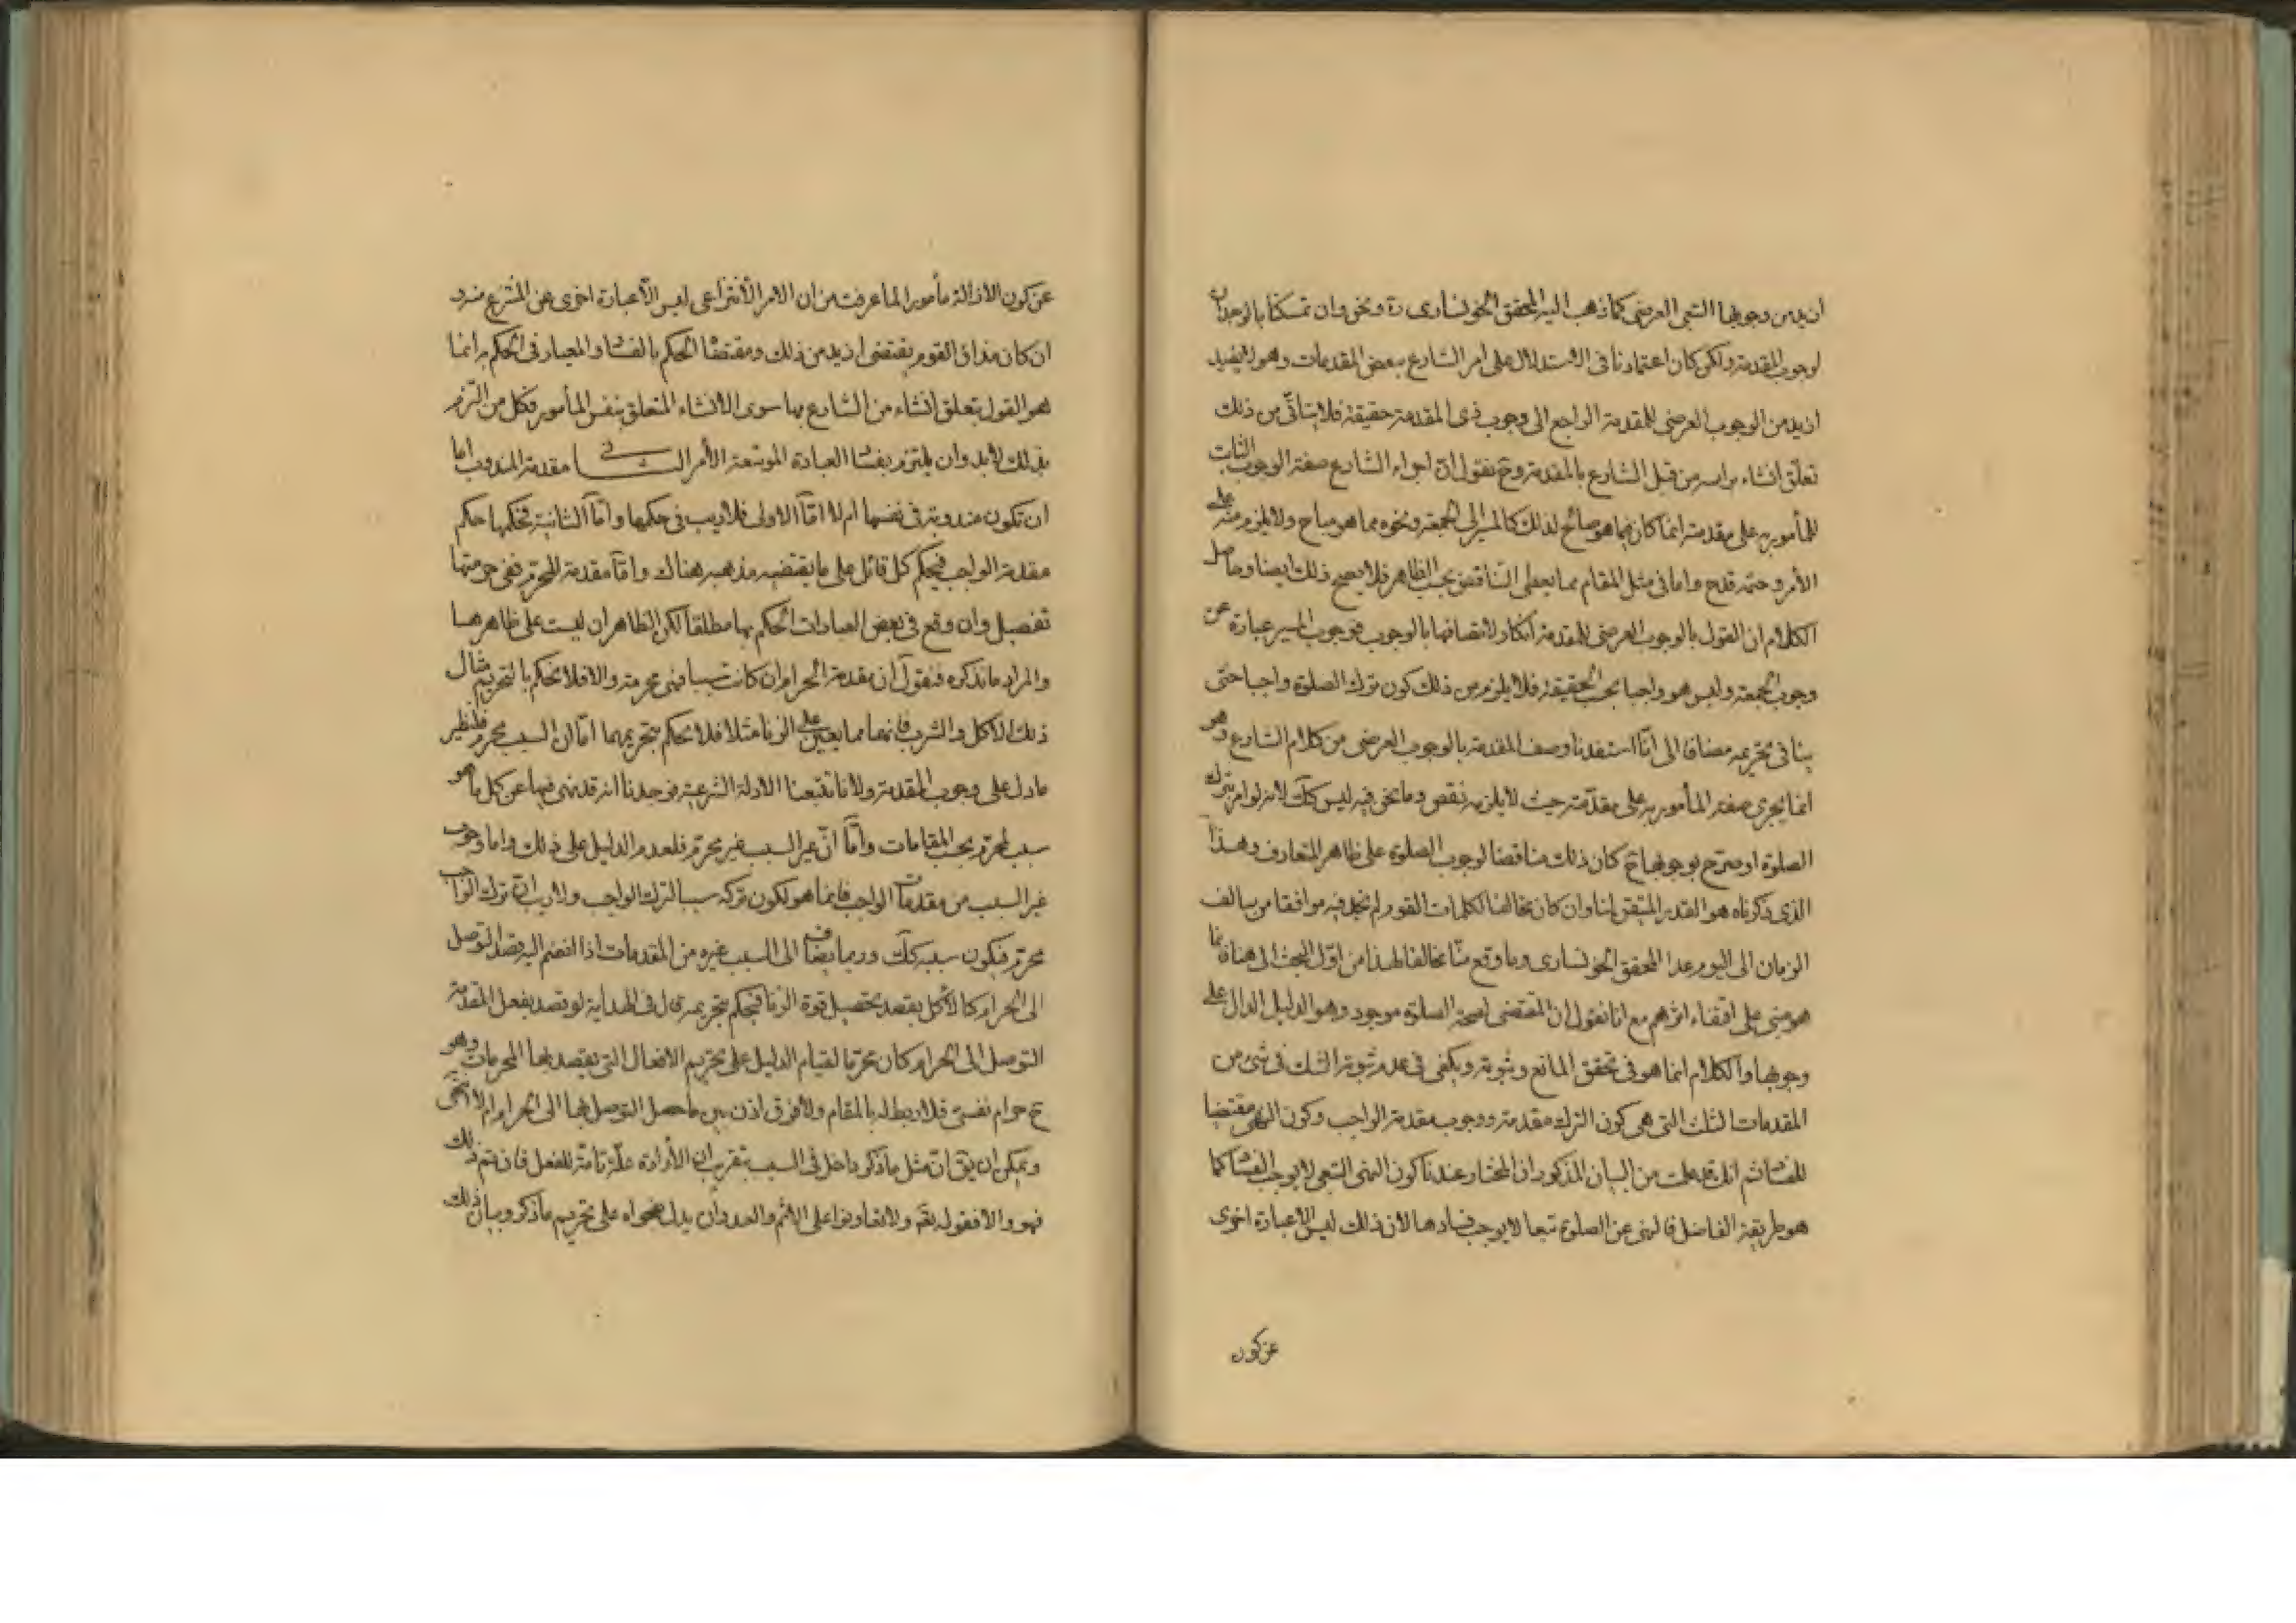 ازيد من وجوبها التبعى العرضى كما ذهب اليه المحقق الخونسارى ره ونحن وان تمسكنا بالوجدان
لوجوب المقدمة ولكن كان اعتمادنا فى الاستدلال على امر الشارع ببعض المقدمات وهو لا يفيد
ازيد من الوجوب العرضى للمقدمة الراجع الى وجوب ذى المقدمة حقيقة فلا يتأتى من ذلك
تعلق انشاء براسه من قبل الشارع بالمقدمة وح نقول ان اجراء الشارع صفة الوجوب الثابت
للمأمور به على مقدمته انما كان فيما هو صالح لذلك كالسير الى الجمعة ونحوه مما هو مباح ولا يلزم منه على
الأمر وحمته قدح واما فى مثل المقام مما يعطى التناقض بحسب الظاهر فلا يصح ذلك ايضا وحاصل
الكلام ان القول بالوجوب العرضى للمقدمة انكار لاتصافها بالوجوب فوجوب السير عبارة عن
وجوب الجمعة وليس هو واجبا بحسب الحقيقة فلا يلزم من ذلك كون ترك الصلوة واجبا حتى
ينافى تحريمه مضافا الى انّا استفدنا وصف المقدمة بالوجوب العرضى من كلام الشارع وهو
انما يجرى صفة المأمور به على مقدّمته حيث لا يلزمه نقص وما نحن فيه ليس كك لانه لو امر بترك
الصلوة او صرّح بوجوبها ح كان ذلك مناقضا لوجوب الصلوة على ظاهر المتعارف وهذا
الذى ذكرناه هو القدر المتيقن لنا وان كان مخالفا لكلمات القوم لم نجد فيه موافقا من سالف
الزمان الى اليوم عدا المحقق الخونسارى وما وقع منّا مخالفا لهذا من اوّل البحث الى هنا فانما
هو مبنى على اقتفاء اثرهم مع انا نقول ان المقتضى لصحة الصلوة موجود وهو الدليل الدال على
وجوبها والكلام انما هو فى تحقق المانع وثبوته ويكفى فى عدم ثبوته الشك فى شىء من
المقدمات الثلث التى هى كون الترك مقدمة ووجوب مقدمة الواجب وكون النهى مقتضيا
للفساد ثم انك قد علمت من البيان المذكور ان المختار عندنا كون النهى التبعى لا يوجب الفساد كما
هو طريقة الفاضل فالنهى عن الصلوة تبعا لا يوجب فسادها لان ذلك ليس الا عبارة اخرى
عن كون
عن كون الازالة مأمورا لما عرفت من ان الامر الأنتزاعى ليس الّا عبارة اخرى عن المنتزع منه و
ان كان مذاق القوم يقتضى ازيد من ذلك ومقتضاه الحكم بالفساد والمعيار فى الحكم به انما
هو القول بتعلق انشاء من الشارع بها سوى الانشاء المتعلق بنفس المأمور فكل من التزم
بذلك لابد وان يلتزم بفساد العبادة الموسّعة الأمر الثانى مقدمة المندوب اما
ان تكون مندوبة فى نفسها ام لا امّا الاولى فلا ريب فى حكمها وامّا الثانية فحكمها حكم
مقدمة الواجب فيحكم كل قائل على ما يقتضيه مذهبه هناك وامّا مقدمة المحرّم ففى حرمتها
تفصيل وان وقع فى بعض العبادات الحكم بها مطلقا لكن الظاهر ان ليست على ظاهرها
والمراد ما نذكره فنقول ان مقدمة الحرام ان كانت سببا فهى محرمة والا فلا نحكم بالتحريم مثال
ذلك الاكل والشرب فانهما مما يعين على الزنا مثلا فلا نحكم بتحريمهما امّا ان السبب محرم فلنظير
ما دل على وجوب المقدمة ولانا تتبعنا الادلة الشرعية فوجدنا انه قد نهى فيها عن كل ما هو
سبب لمحرّم بحسب المقامات وامّا انّ غير السبب غير محرّم فلعدم الدليل على ذلك واما وجوب
غير السبب من مقدمات الواجب فانما هو لكون تركه سببا لترك الواجب ولا ريب ان ترك الواجب
محرّم فيكون سببه كك وربما يضاف الى السبب غيره من المقدمات اذا انضم اليه قصد التوصل
الى الحرام كالأكل بقصد تحصيل قوة الزنا فيحكم بتحريمه قال فى الهداية لو قصد بفعل المقدمة
التوصل الى الحرام كان محرّما لقيام الدليل على تحريم الافعال التى يقصد بها المحرمات وهو
ح حرام نفسى فلا ربط له بالمقام ولا فرق اذن بين ما حصل التوصل بها الى الحرام ام لا انتهى
ويمكن ان يق انّ مثل ما ذكر داخل فى السبب بتقريب ان الأرادة علّة تامّة للفعل فان تم ذلك
فهو والا فقوله تعم ولا تعاونوا على الاثم والعدوان يدل بفحواه على تحريم ما ذكر وبيان ذلك